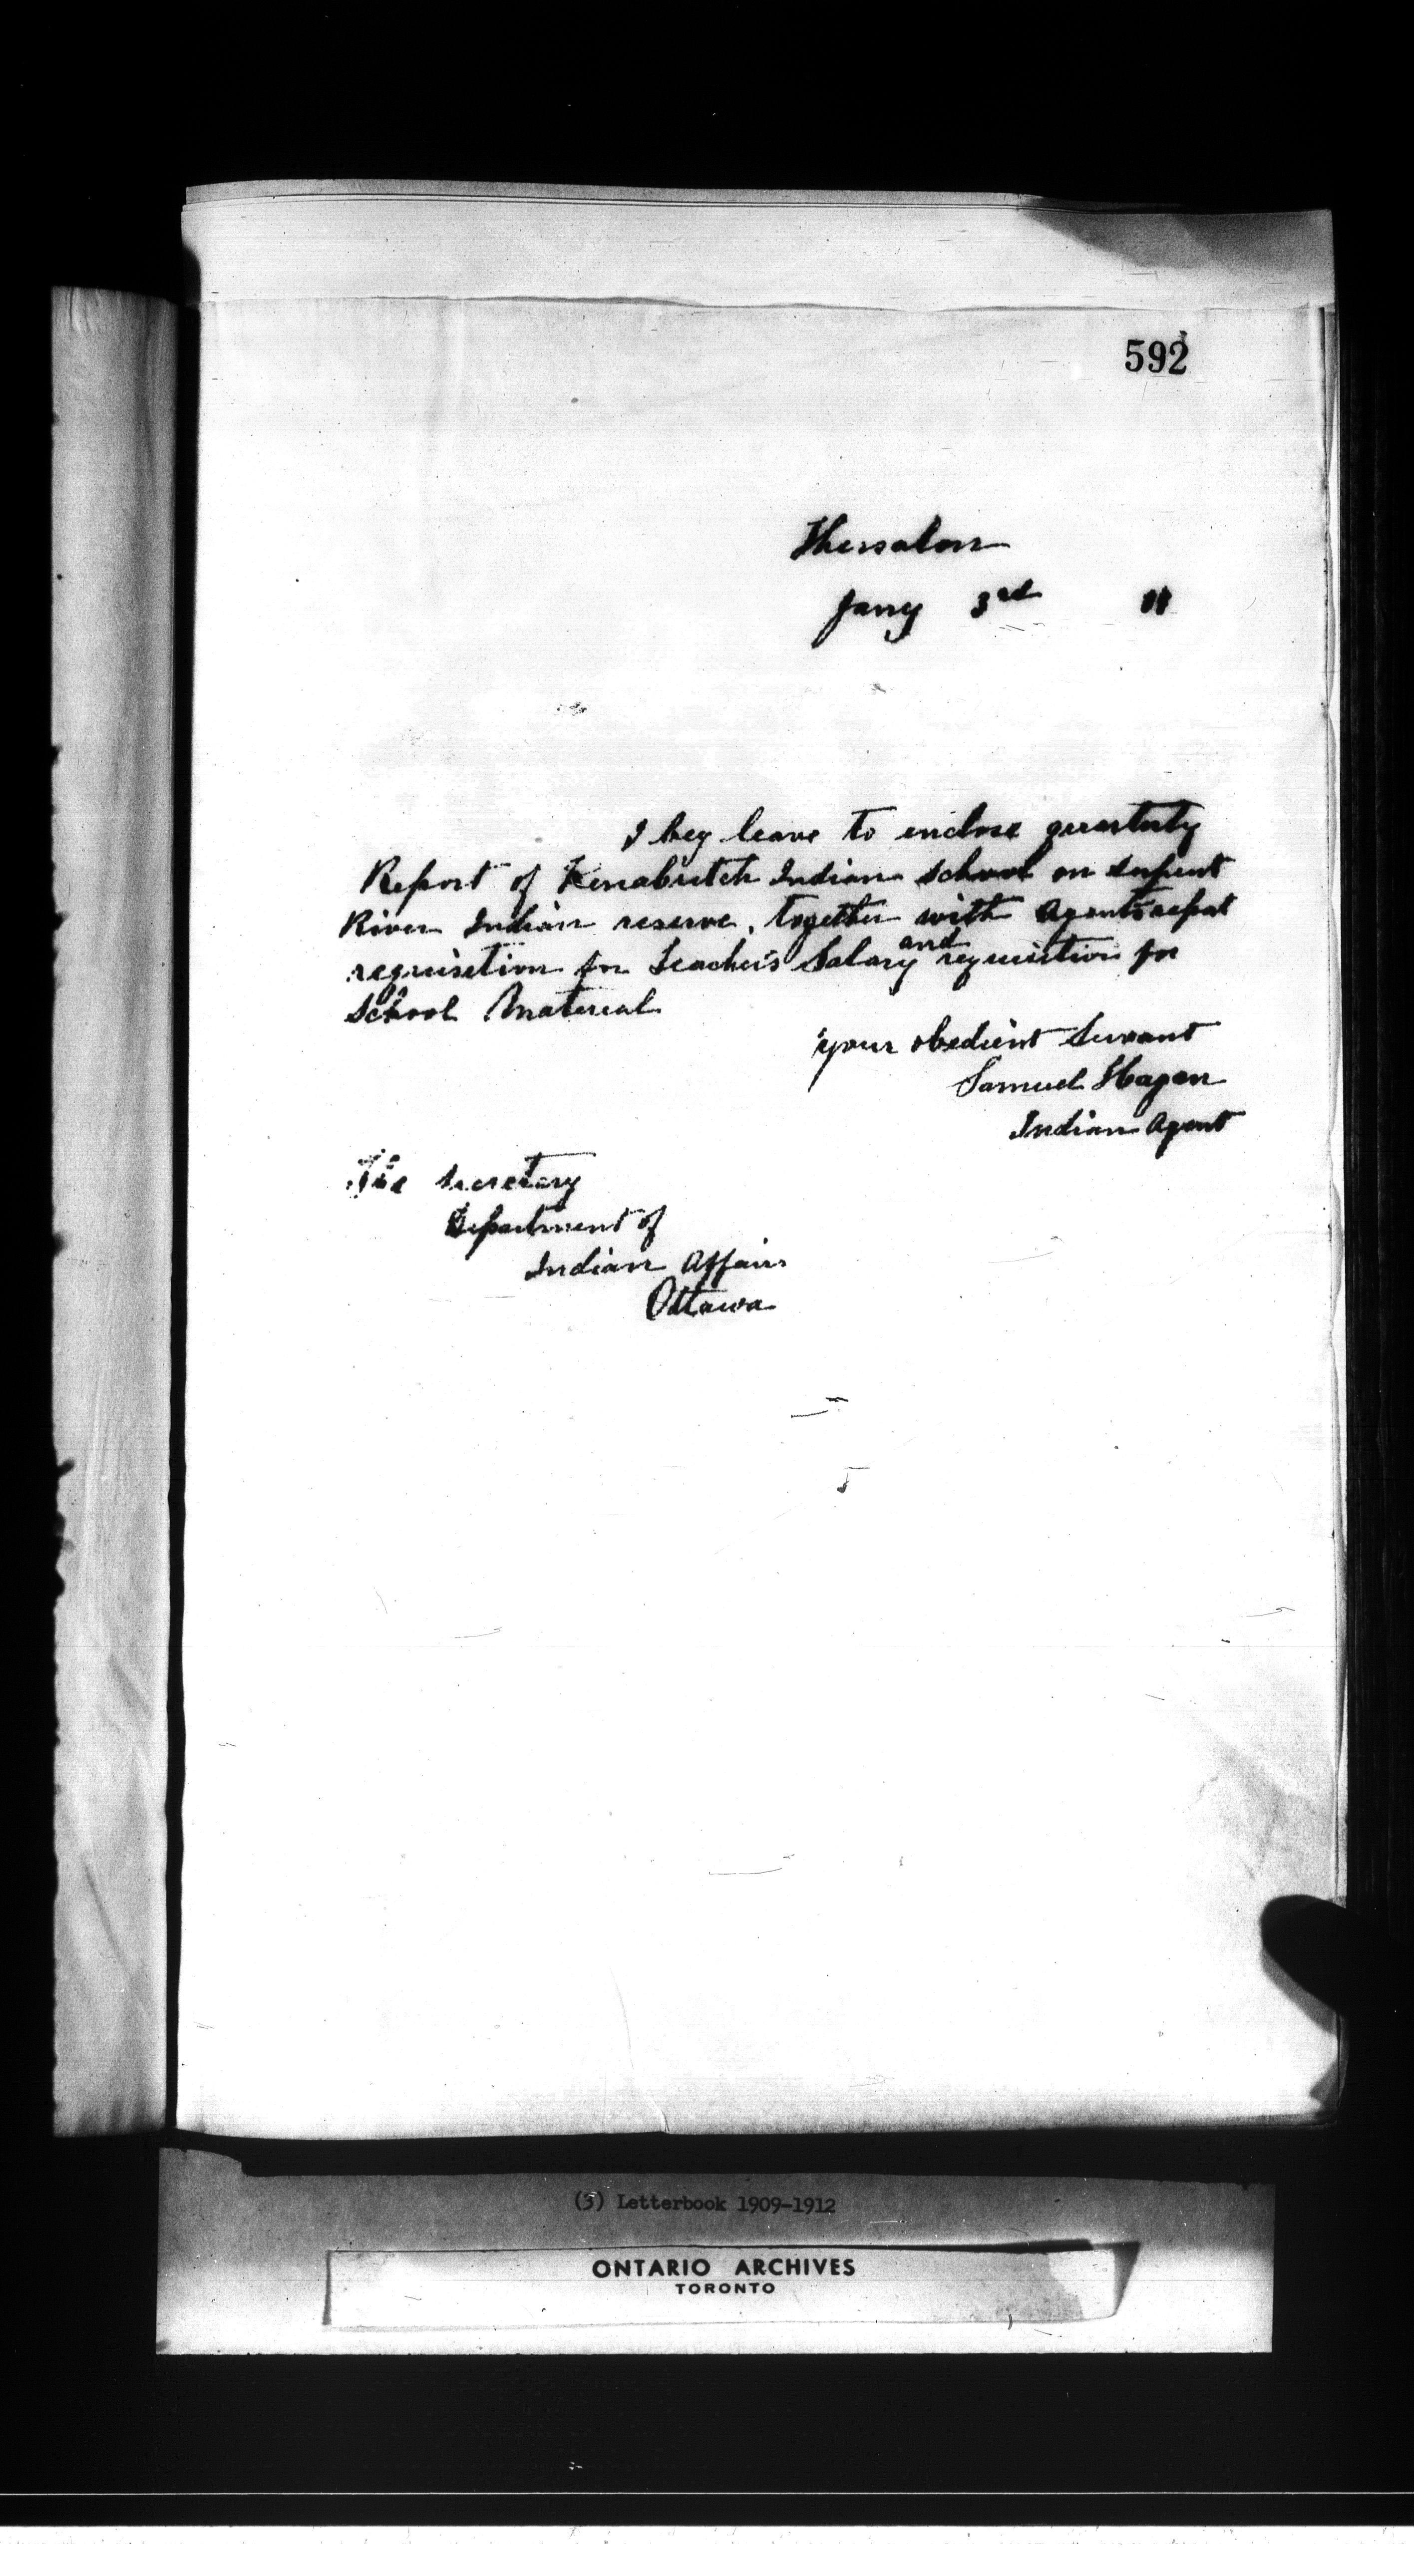 592
Thessalon
Jany 3rd 11
I beg leave to enclose quarterly
Report of Kenabutch Indian School on Serpent
River Indian reserve, together with Agents report
requisition for Teacher's Salary and requisition for
School Material
Your obedient Servant
Samuel Hagan
Indian Agent
The Secretary
Department of
Indian Affairs
Ottawa
(3) Letterbook 1909-1912
ONTARIO ARCHIVES
TORONTO